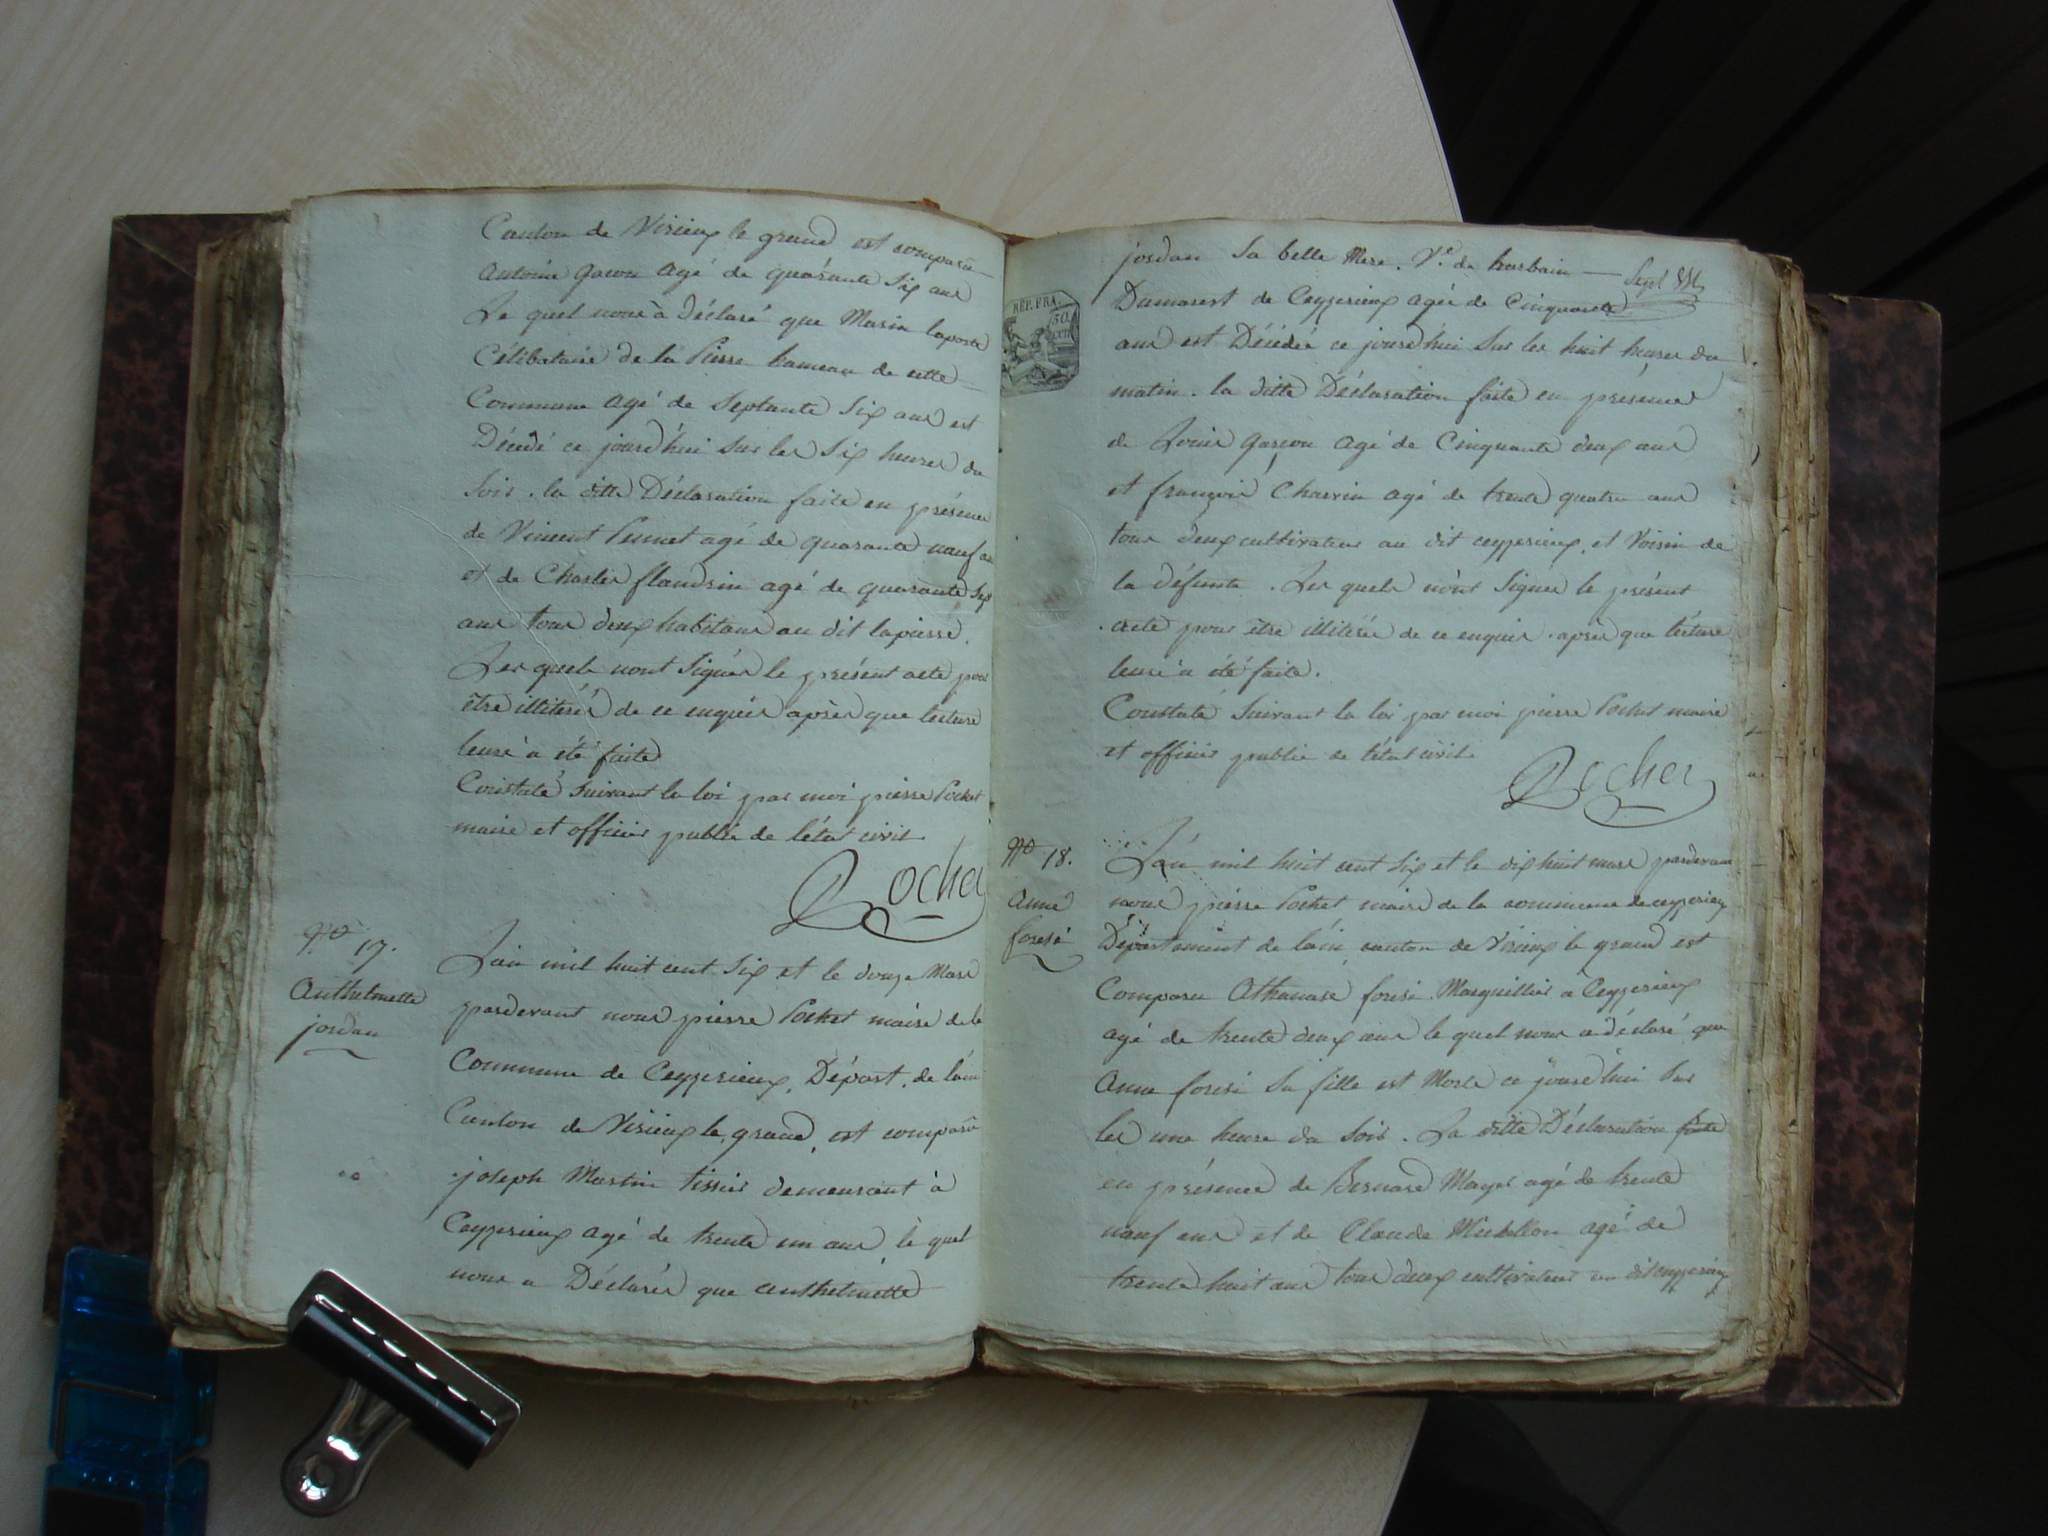 Canton de Virieux le grand est comparu
Antoine gacon agé de quarante Six ans
Le quel nous à déclaré que Marin laporte
Célibataire de la Pierre hameau de cette
Commune agé de Septante Six ans est
Décédé ce jourd'hui Sur les Six heures du
Soir. la ditte Déclaration faite en présence
de Vincent agé de quarante neuf
et de Charles flandrin agé de quarante Sept
ans tous deux habitans au dit lapierre.
Les quels nont Signés le présent acte pour
être illitérés de ce enquis après que lecture
leurs à été faite
Constaté Suivant la loi par moi pierre Pochet
maire et officier public de l'état civil.
Pochet
N° 17.
Anthelmette
jordan
L'an mil huit cent Six et le douze Mars
pardevant nous pierre Pochet maire de la
Commune de Ceyzerieux, Départ. de l'ain
Canton de Virieux le grand, est comparu
joseph Martin tissier demeurant à
Ceyzerieux agé de trente un ans, le quel
nous a Déclarés que anthelmette
jordan Sa belle Mere. Ve. de
Dumarest de Ceyzerieux agée de Cinquante
ans est Décédée ce jourd'hui Sur les huit heures du
matin. la ditte Déclaration faite en présence
de Louis gacon agé de Cinquante deux ans
et françois Charvin agé de trente quatre ans
tous deux cultivateurs au dit ceyzerieux, et Voisin de
la défunte. Les quels n'ont Signer le présent
acte pour être illitérés de ce enquis. après que lecture
leurs à été faite.
Constaté Suivant la loi par moi pierre Pochet maire
et officier public de l'état civil.
Pochet
REP. FRA.
50
N° 18.
Anne
foresi
L'an mil huit cent Six et le dix huit mars pardevant
nous pierre Pochet maire de la commune de ceyzerieux
Département de l'ain, canton de Virieux le grand est
Comparu Athanase foresi Marguillier a Ceyzerieux
agé de trente deux ans le quel nous a déclaré que
Anne foresi Sa fille est Morte ce jourd'hui Sur
les une heure du Soir. La ditte Déclaration faite
en présence de Bernard Mayer agé de trente
neuf ans et de Claude agé de
trente huit ans tous deux cultivateurs au dit ceyzerieux